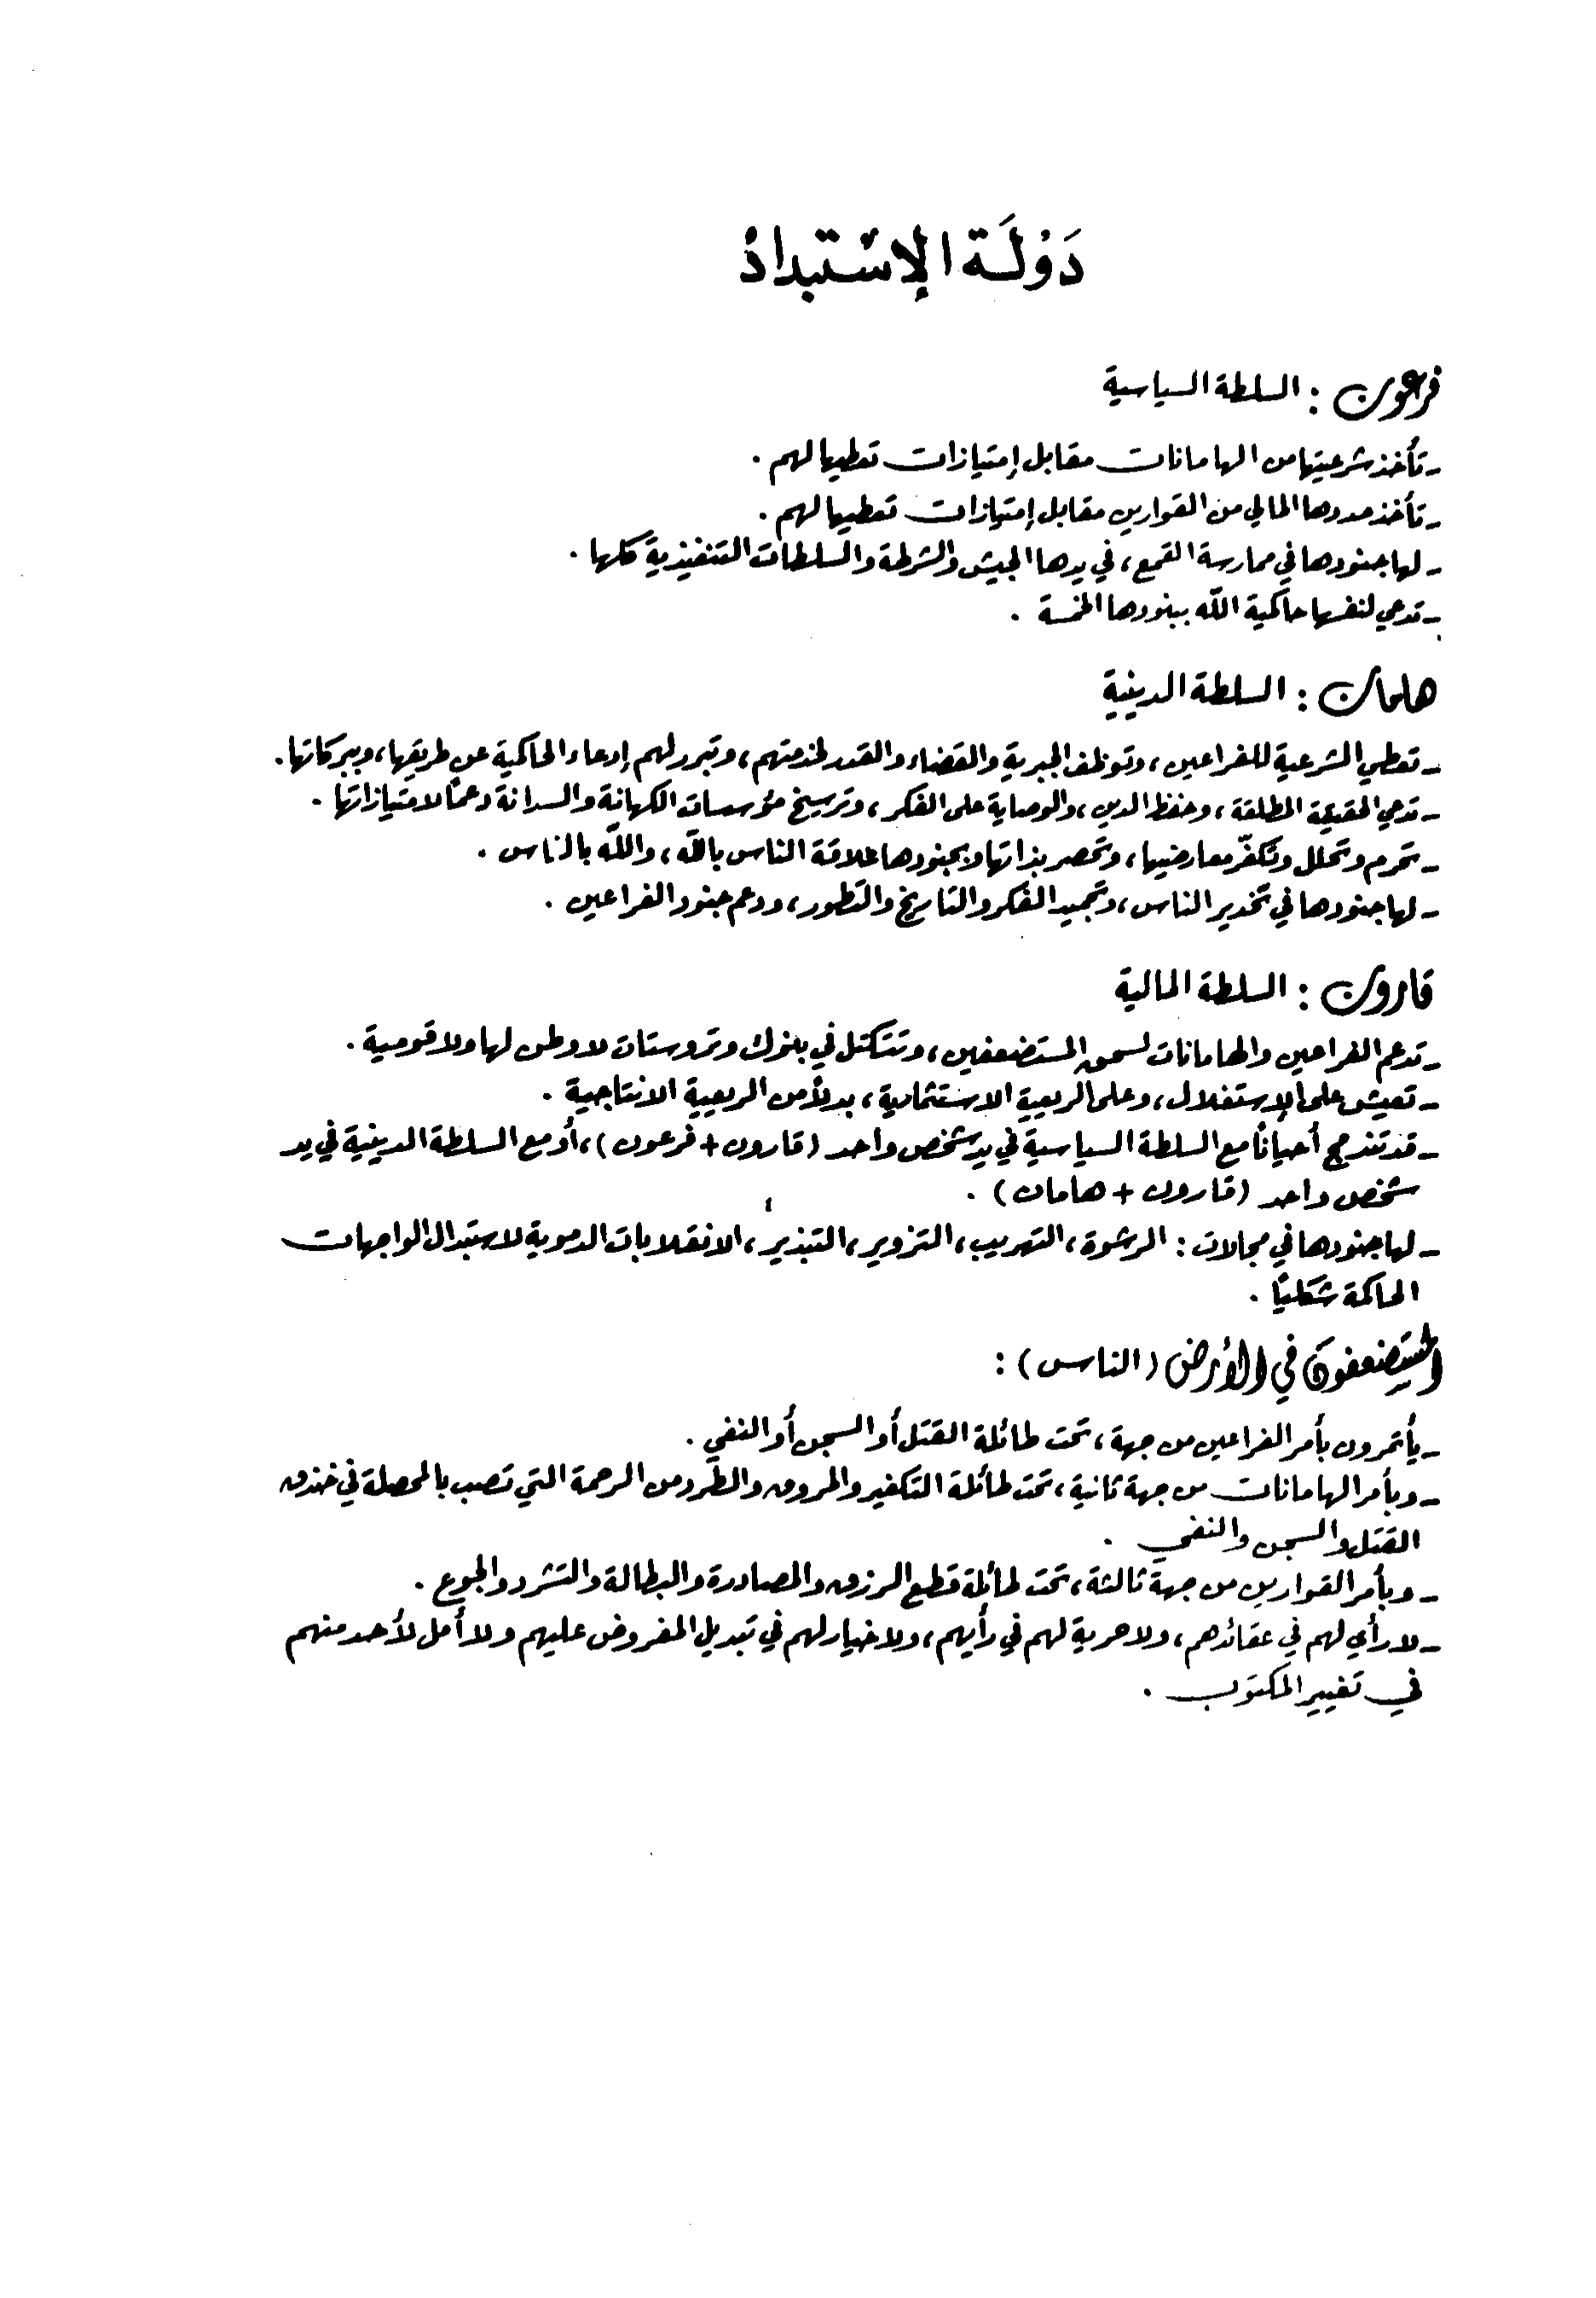 دَوْلَة الإسْتبدادْ
فرعون : السلطة السياسية
- تأخذ شرعيتها من الهامانات مقابل إمتيازات تعطيها لهم .
- تأخذ مددها المالي من القوارين مقابل إمتيازات تعطيها لهم .
- لها جنودها في ممارسة القمع ، في يدها الجيش والشرطة والسلطات التنفيذية كلها .
- تدعي لنفسها حاكمية الله ببنودها الخمسة .
هامان : السلطة الدينية
- تعطي الشرعية للفراعين ، وتوظف الجبرية والقضاء والقدر لخدمتهم ، وتبرر لهم إدعاء الحاكمية عن طريقها ، وببركاتها .
- تدعي الحقيقة المطلقة ، وحفظ الدين ، والوصاية على الفكر ، وترسيخ مؤسسات الكهانة والسدانة دعماً لامتيازاتها .
- تحرم وتحلل وتكفّر معارضيها ، وتحصر بذاتها وبجنودها علاقة الناس بالله ، والله بالناس .
- لها جنودها في تخدير الناس ، وتجميد الفكر والتاريخ والتطور ، ودعم جنود الفراعين .
قارون : السلطة المالية
- تدعم الفراعين والهامانات لسحق المستضعفين ، وتتكتل في بنوك وتروستات لا وطن لها ولا قومية .
- تعيش على الإستغلال ، وعلى الريعية الاستثمارية ، بدلاً من الريعية الانتاجية .
- قد تندمج أحياناً مع السلطة السياسية في يد شخص واحد ( قارون + فرعون ) ، أو مع السلطة الدينية في يد
شخص واحد ( قارون + هامان ) .
- لها جنودها في مجالات : الرشوة ، التهريب ، التزوير ، التبذير ، الانقلابات الدموية لاستبدال الواجهات
الحاكمة شكلياً .
المستضعفون في الأرض ( الناس ) :
- يأتمرون بأمر الفراعين من جهة ، تحت طائلة القتل أو السجن أو النفي .
- وبأمر الهامانات من جهة ثانية ، تحت طائلة التكفير والمروق والطرد من الرحمة التي تصب بالمحصلة في خندق
القتل والسجن والنفي .
- وبأمر القوارين من جهة ثالثة ، تحت طائلة قطع الرزق والمصادرة والبطالة والتشرد والجوع .
- لا رأي لهم في عقائدهم ، ولا حرية لهم في رأيهم ، ولا خيار لهم في تبديل المفروض عليهم ولا أمل لأحد منهم
في تغيير المكتوب .